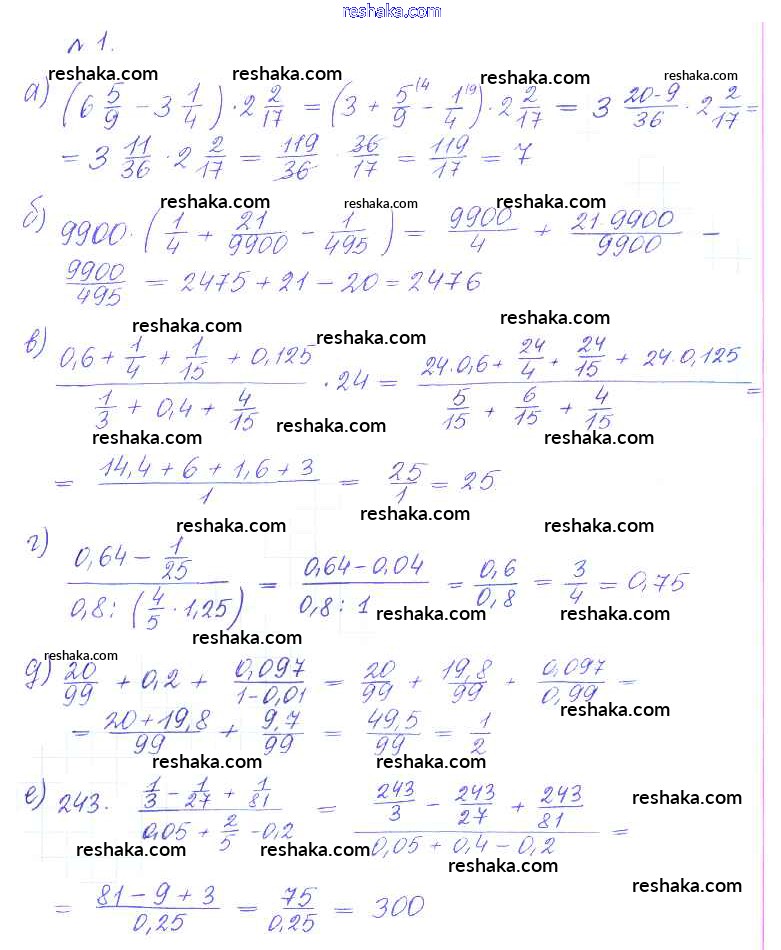 reshaka.com
№ 1.
reshaka.com reshaka.com reshaka.com reshaka.com
а) (6 5/9 − 3 1/4) · 2 2/17 = (3 + 5/9 \4 − 1/4 \9) · 2 2/17 = 3 (20-9)/36 · 2 2/17 =
reshaka.com reshaka.com reshaka.com
= 3 11/36 · 2 2/17 = 119/36 · 36/17 = 119/17 = 7
reshaka.com reshaka.com reshaka.com
б) 9900 · (1/4 + 21/9900 − 1/495) = 9900/4 + (21·9900)/9900 −
reshaka.com reshaka.com reshaka.com
9900/495 = 2475 + 21 − 20 = 2476
reshaka.com reshaka.com reshaka.com
в) (0,6 + 1/4 + 1/15 + 0,125)/(1/3 + 0,4 + 4/15) · 24 = (24·0,6 + 24/4 + 24/15 + 24·0,125)/(5/15 + 6/15 + 4/15) =
reshaka.com reshaka.com reshaka.com
= (14,4 + 6 + 1,6 + 3)/1 = 25/1 = 25
reshaka.com reshaka.com reshaka.com
г) (0,64 − 1/25)/(0,8 : (4/5 · 1,25)) = (0,64 − 0,04)/(0,8 : 1) = 0,6/0,8 = 3/4 = 0,75
reshaka.com reshaka.com reshaka.com
reshaka.com
д) 20/99 + 0,2 + 0,097/(1-0,01) = 20/99 + 19,8/99 + 0,097/0,99 =
reshaka.com
= (20 + 19,8)/99 + 9,7/99 = 49,5/99 = 1/2
reshaka.com reshaka.com
е) 243 · (1/3 − 1/27 + 1/81)/(0,05 + 2/5 − 0,2) = (243/3 − 243/27 + 243/81)/(0,05 + 0,4 − 0,2) =
reshaka.com
reshaka.com reshaka.com reshaka.com
reshaka.com reshaka.com
= (81 − 9 + 3)/0,25 = 75/0,25 = 300